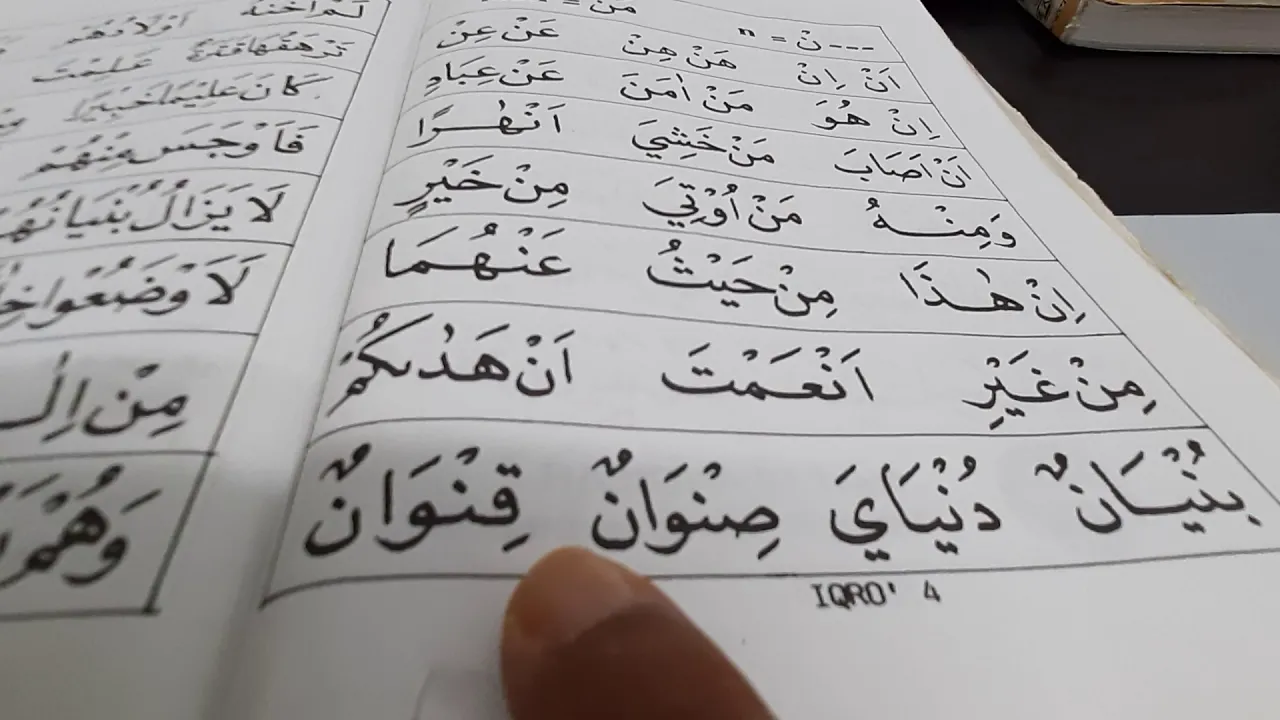 مَنْ =
--- نْ = n
اَنْ اِنْ هَنْ هِنْ عَنْ عِنْ
اِنْ هُوَ مَنْ اٰمَنَ عَنْ عِبَادِ
اَنْ اَصَابَ مَنْ خَشِيَ اَنْهٰرًا
وَمِنْهُ مَنْ اُوْتِيَ مِنْ خَيْرٍ
اِنْ هٰذَا مِنْ حَيْثُ عَنْهُمَا
مِنْ غَيْرِ اَنْعَمْتَ اَنْ هَدٰىكُمْ
بُنْيَانٌ دُنْيَايَ صِنْوَانٌ قِنْوَانٌ
IQRO' 4
اَوْلَادُهُمْ
عَلِمْتَ
كَانَ عَلِيْمًا خَبِيْرًا
فَاَوْجَسَ مِنْهُمْ
لَا يَزَالُ بُنْيَانُهُمْ
لَاَوْضَعُوْا
مِنْ
وَهُمْ